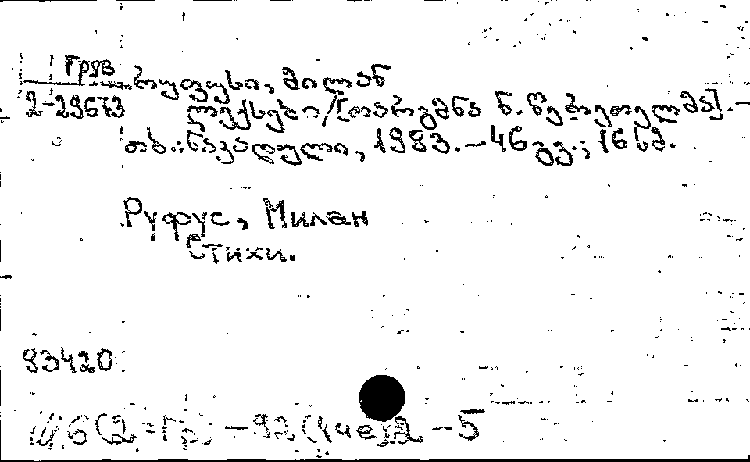 Груз
2-29673
რუფუსი, მილან
ლექსები / [თარგმნა ნ. წერეთელმა]. –
თბ.: ნაკადული, 1983. – 46 გვ.; 16 სმ.
Руфус, Милан
Стихи.
93420
Ш6(2=Гр) – 92(4че)2 – 5